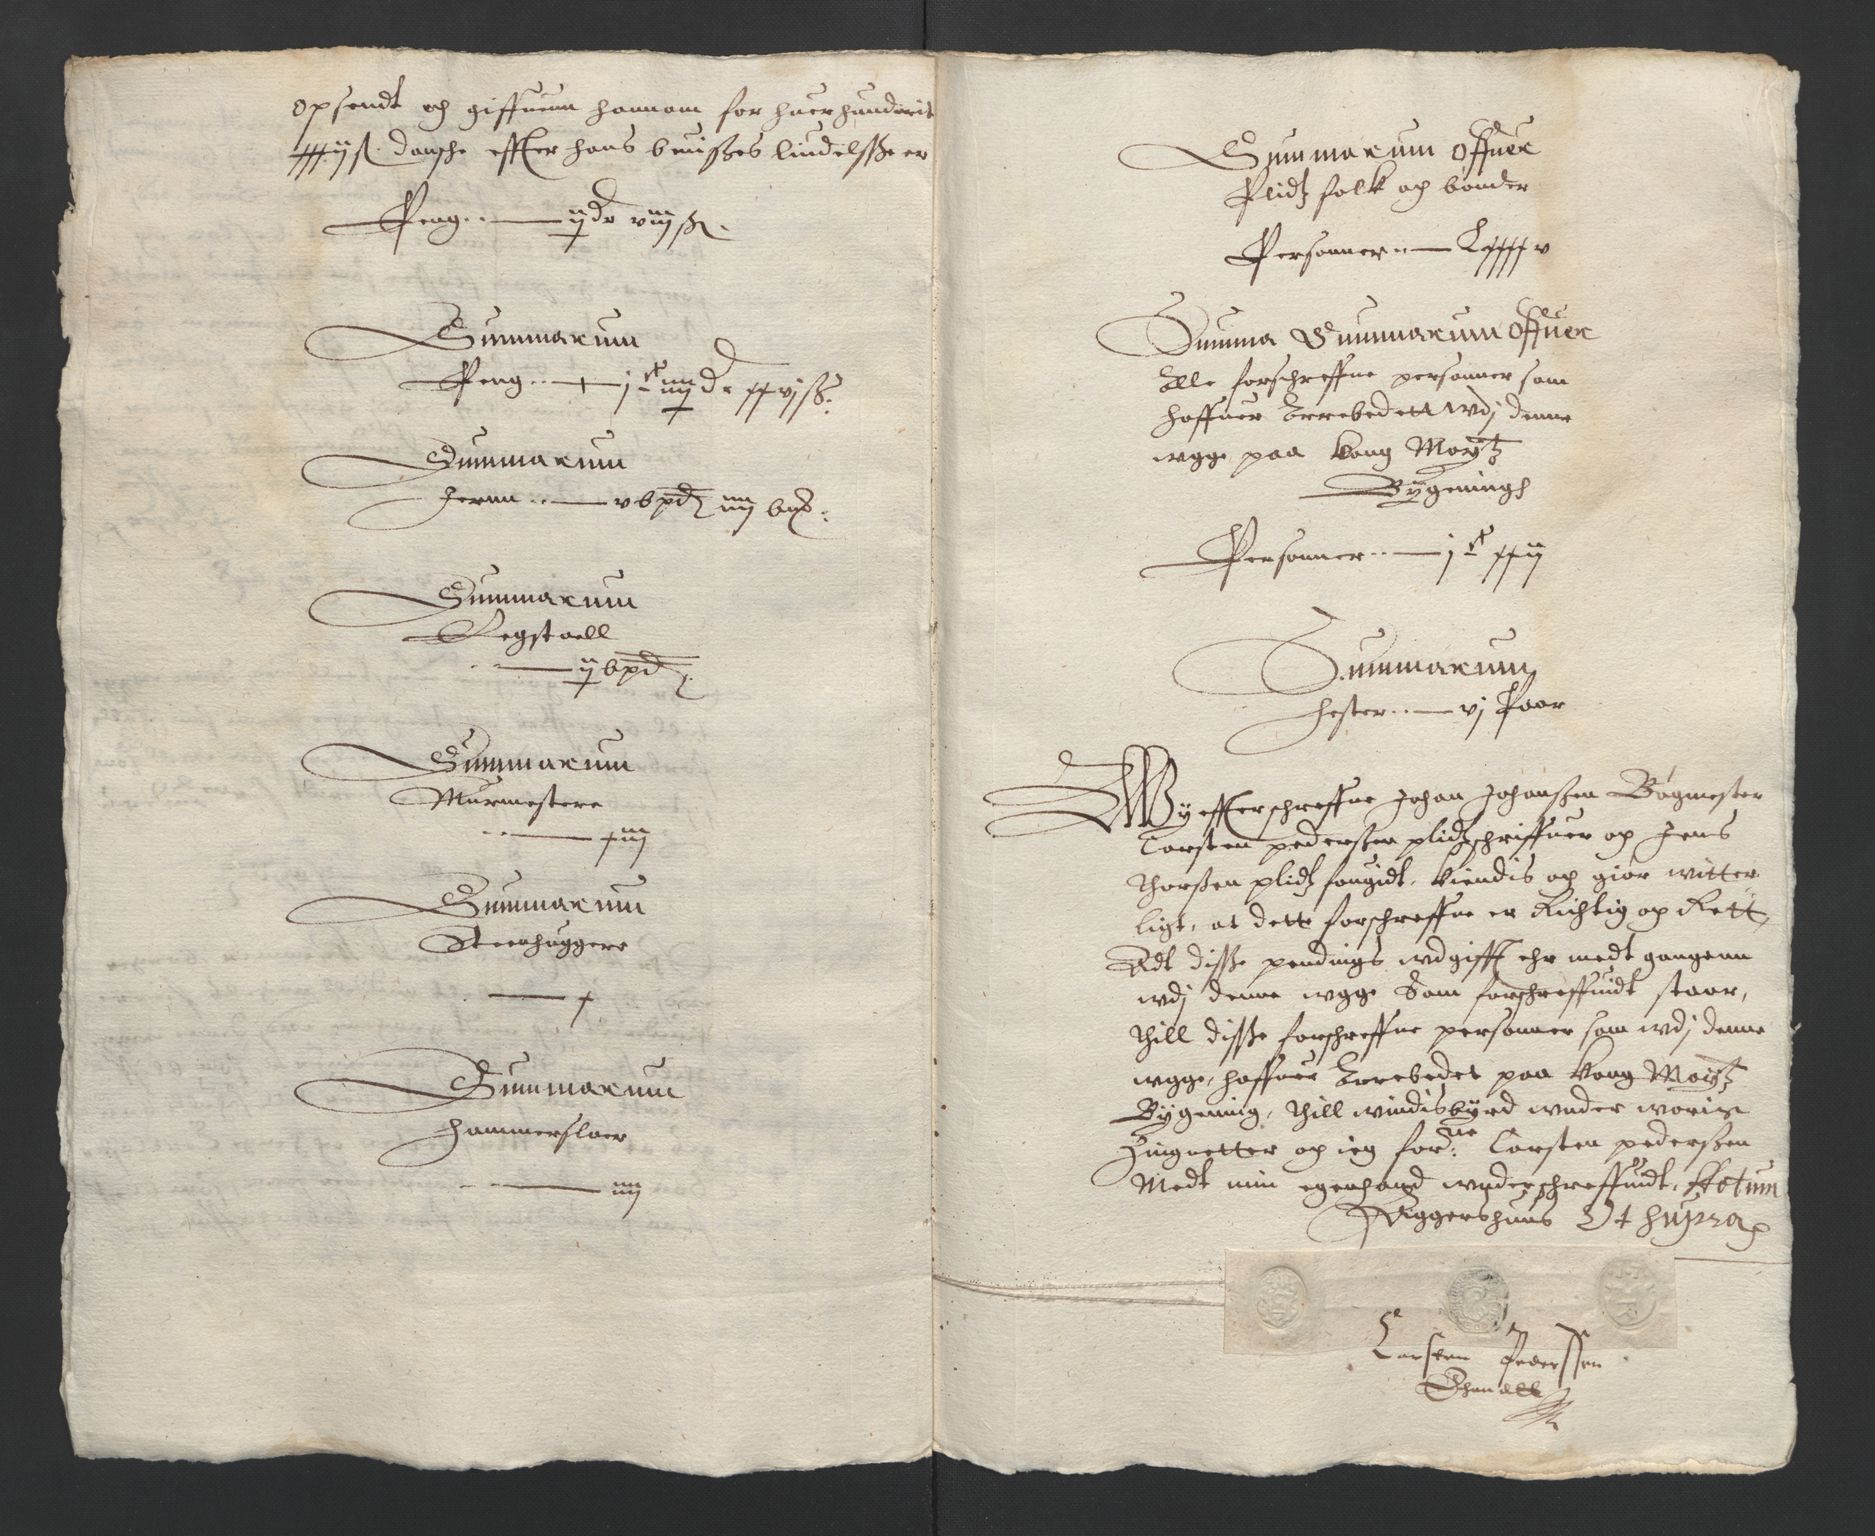 opsendt och giffuenn hannom for huer hundrit
xxxij ß danske efter hans beuisses liudelsse er
Peng..— ij dr viij ß.
Summarum
Peng..— jc iiij dr xxvj ß.
Summarum
Jernn..— v bpd iiij
Summarum
Legstaell
..— ij bpd
Summarum
Murmestere
..— xiij
Summarum
Steenhuggere
— x
Summarum
hammerslaer
..— iiij
Summarum Offuer
Plidtz folk och bønder
Personner..— Lxxxxv
Summa Summarum Offuer
Alle forschreffne personner som
haffuer Arrebedett wdj denne
wgge paa Kong Maytz
Bygeningh
Personner..— jc xxij
Summarum
hester..— vj Paar
Wy effterschreffne Johan Johanssen Bøgmester
Carsten pederssen plidtzschriffuer och Jens
Thorssen plidtz fougidt, kiendis och giør witter
ligt, at dette forschreffne er Richtig och Rett,
Adt disse pendings wdgifft ehr medt gangenn
wdj denne wgge Som forschreffuidt staar,
Thill disse forschreffne personner som wdj denne
wgge, haffuer Arrebedet paa Kong Maytz
Bygening, Thill windisbyrd wnder worris
Zingnetter och ieg forne: Carsten pederssen
Medt min egenhand wnderschreffuidt, Actum
Aggershuus Vt supra
Carsten Pederssen
Egen